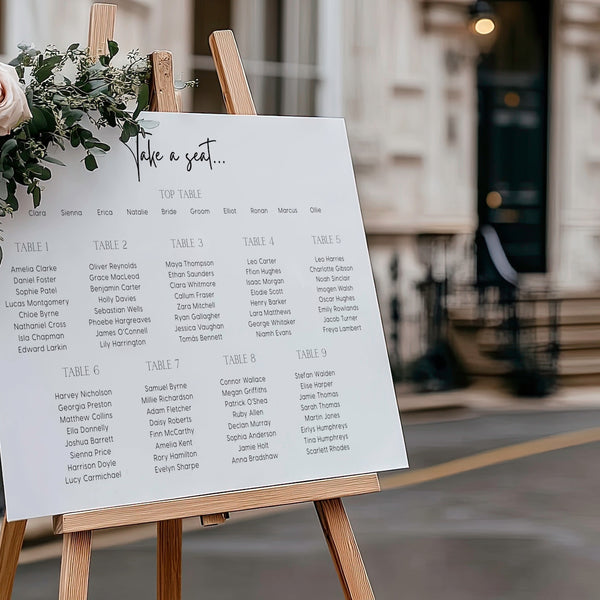 Take a seat...
TOP TABLE
Clara Sienna Erica Natalie Bride Groom Elliot Ronan Marcus Ollie
TABLE 1
Amelia Clarke
Daniel Foster
Sophie Patel
Lucas Montgomery
Chloe Byrne
Nathaniel Cross
Isla Chapman
Edward Larkin
TABLE 2
Oliver Reynolds
Grace MacLeod
Benjamin Carter
Holly Davies
Sebastian Wells
Phoebe Hargreaves
James O'Connell
Lily Harrington
TABLE 3
Maya Thompson
Ethan Saunders
Clara Whitmore
Callum Fraser
Zara Mitchell
Ryan Gallagher
Jessica Vaughan
Tomás Bennett
TABLE 4
Leo Carter
Ffion Hughes
Isaac Morgan
Elodie Scott
Henry Barker
Lara Matthews
George Whitaker
Niamh Evans
TABLE 5
Leo Harries
Charlotte Gibson
Noah Sinclair
Imogen Walsh
Oscar Hughes
Emily Rowlands
Jacob Turner
Freya Lambert
TABLE 6
Harvey Nicholson
Georgia Preston
Matthew Collins
Ella Donnelly
Joshua Barrett
Sienna Price
Harrison Doyle
Lucy Carmichael
TABLE 7
Samuel Byrne
Millie Richardson
Adam Fletcher
Daisy Roberts
Finn McCarthy
Amelia Kent
Rory Hamilton
Evelyn Sharpe
TABLE 8
Connor Wallace
Megan Griffiths
Patrick O'Shea
Ruby Allen
Declan Murray
Sophia Anderson
Jamie Holt
Anna Bradshaw
TABLE 9
Stefan Walden
Elise Harper
Jamie Thomas
Sarah Thomas
Martin Jones
Eirlys Humphreys
Tina Humphreys
Scarlett Rhodes